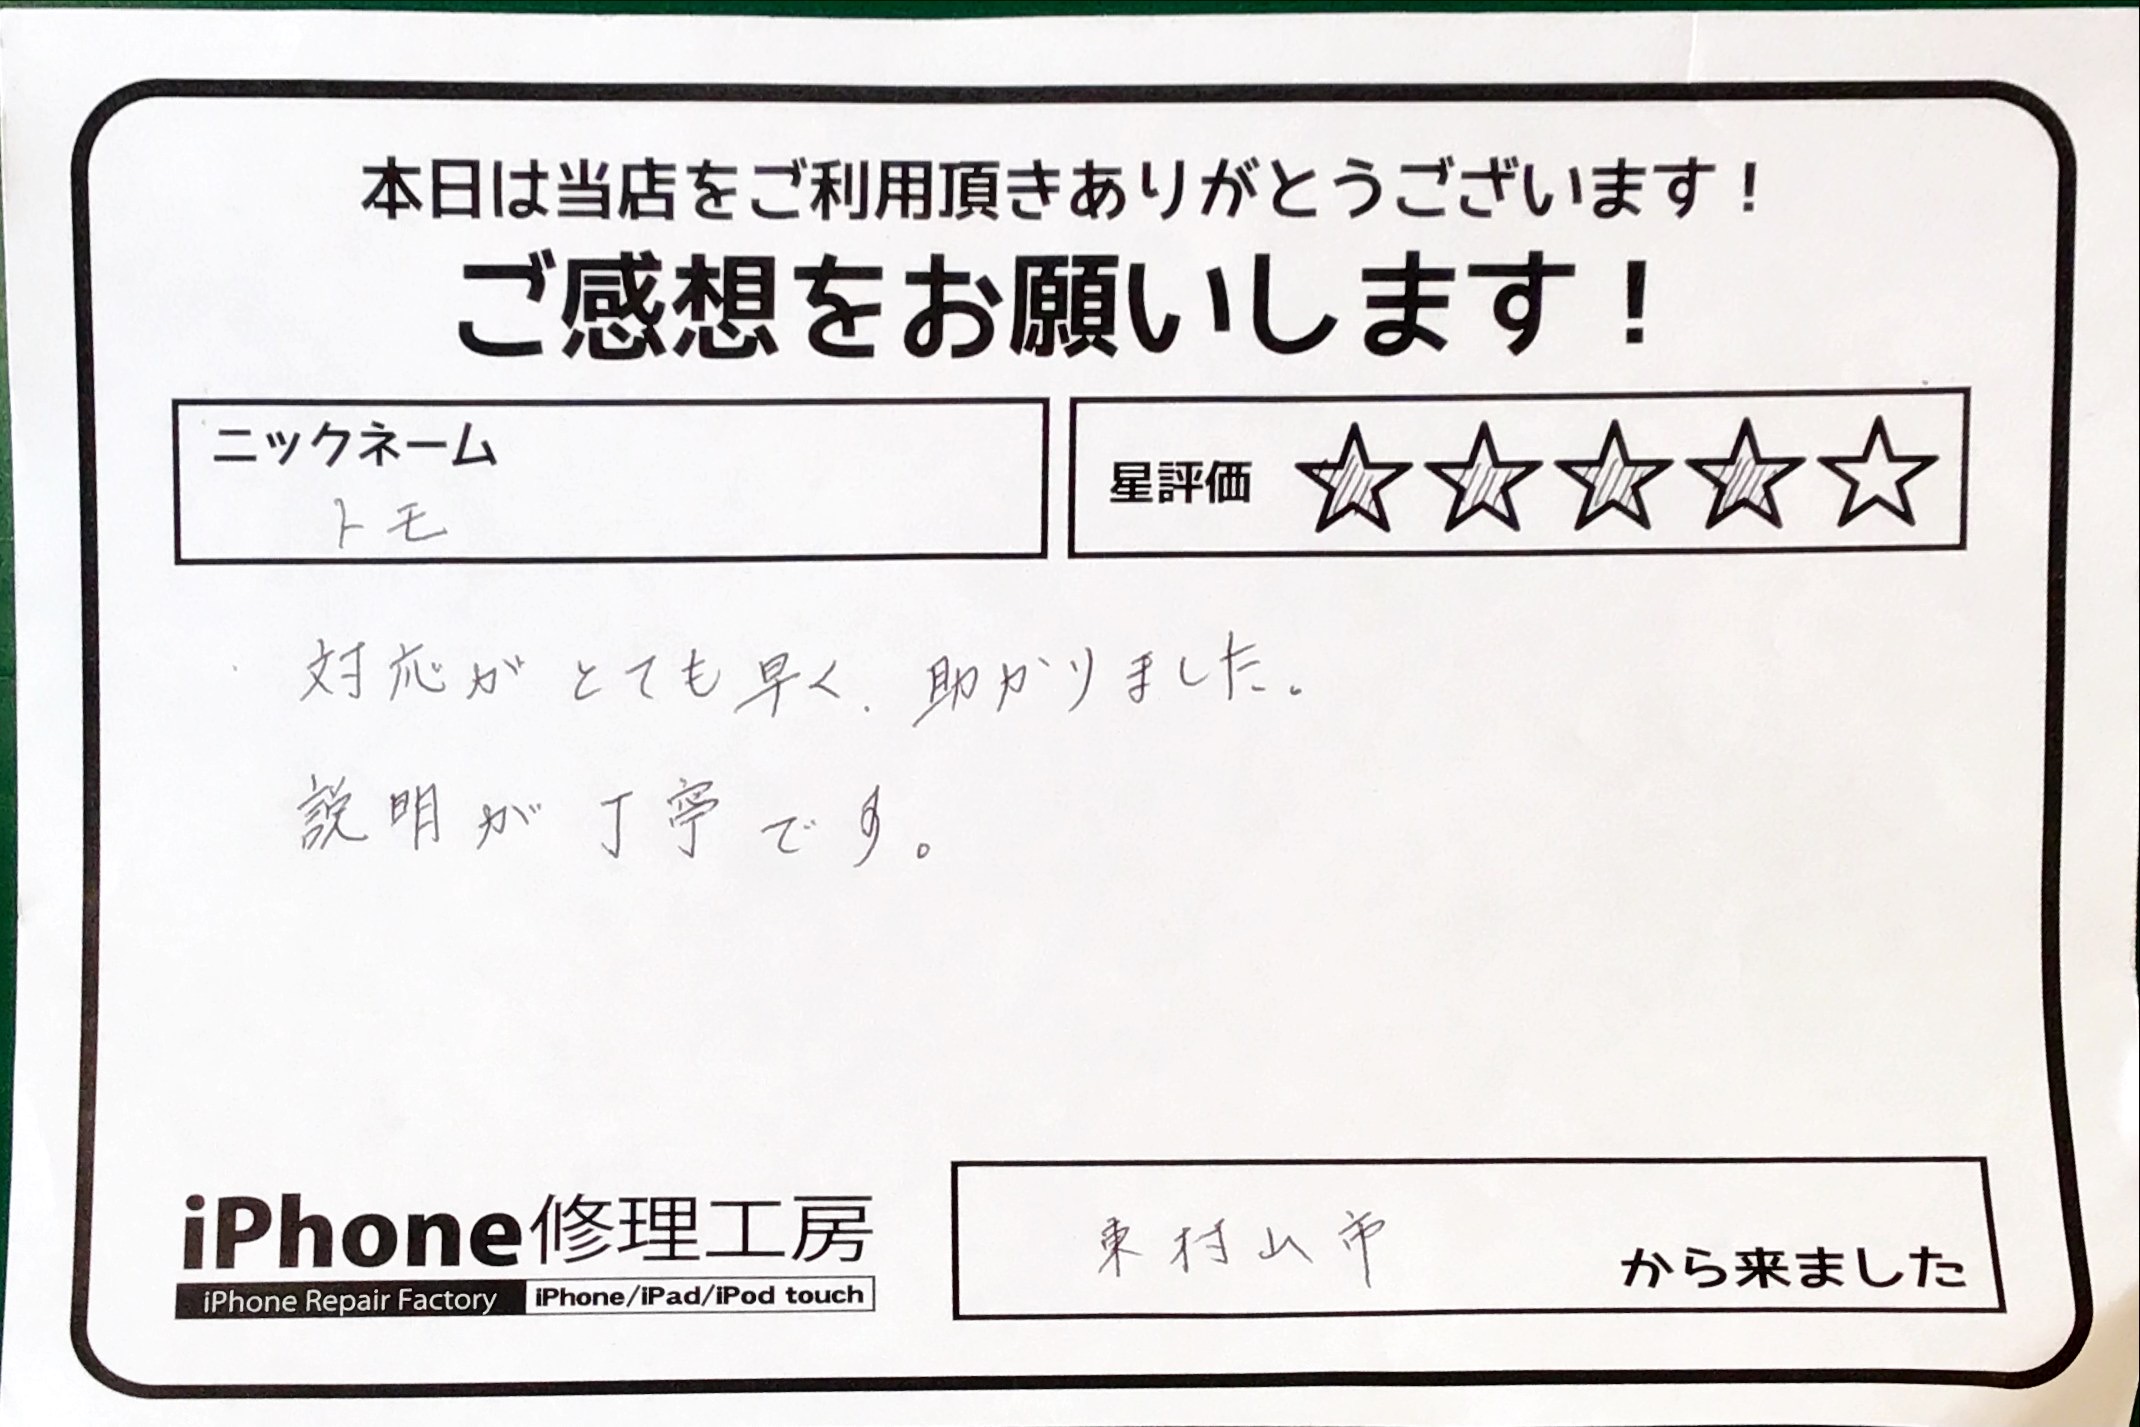 本日は当店をご利用頂きありがとうございます！
ご感想をお願いします！
ニックネーム
トモ
星評価 ★★★★☆
対応がとても早く、助かりました。
説明が丁寧です。
iPhone修理工房
iPhone Repair Factory iPhone/iPad/iPod touch
東村山市 から来ました